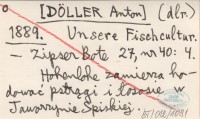 [DÖLLER Anton] (dlr.)
1889. Unsere Fischcultur.
– Zipser Bote 27, nr 40: 4.
Hohenlohe zamierza ho-
dować pstrągi i łososie w
Jaworzynie Spiskiej.